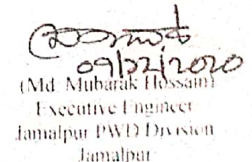 09/12/2020
(Md. Mubarak Hossain)
Executive Engineer
Jamalpur PWD Division
Jamalpur